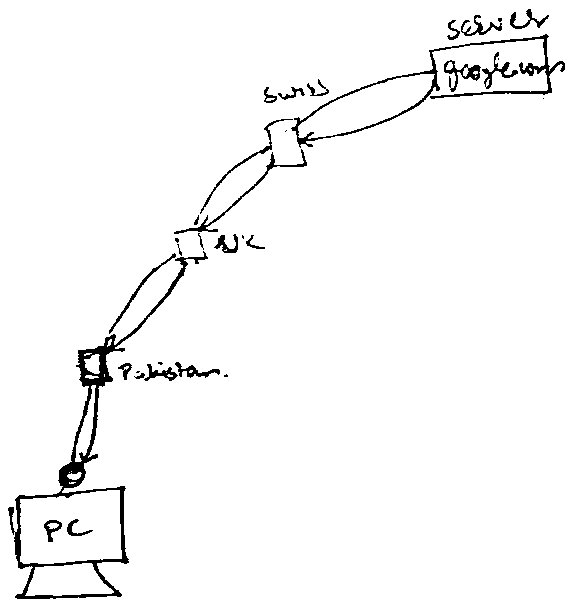 Server
google.com
Swiss
UK
Pakistan.
PC